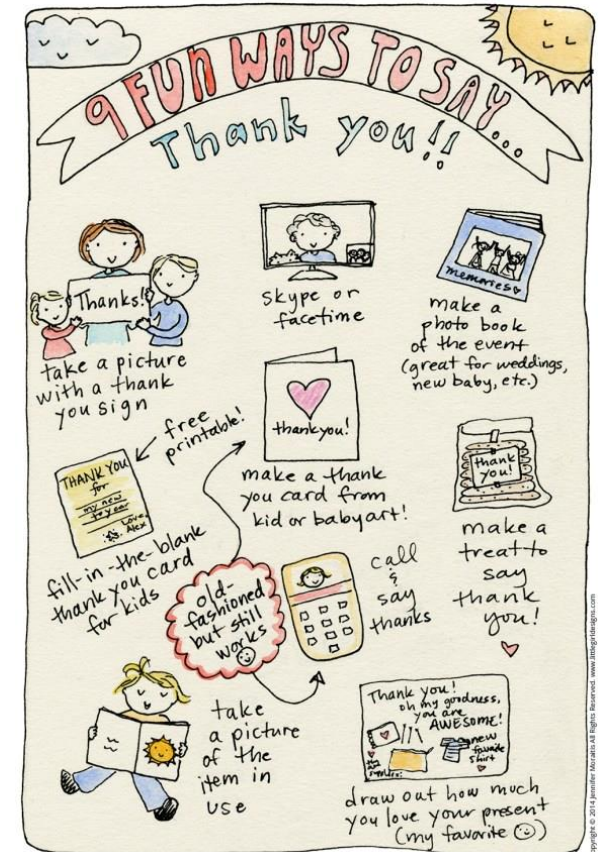 9 FUN WAYS TO SAY...
Thank you!!
Thanks!!
take a picture
with a thank
you sign
skype or
facetime
memories
make a
photo book
of the event
(great for weddings,
new baby, etc.)
free
printable!
THANK YOU
for
my new
toy car
Love,
Alex
fill-in-the-blank
thank you card
for kids
thank you!
make a thank
you card from
kid or baby art!
thank
you!
make a
treat to
say
thank
you!
old-
fashioned
but still
works
call
&
say
thanks
take
a picture
of the
item in
use
Thank you!
oh my goodness,
you are
AWESOME!
new
favorite
shirt
draw out how much
you love your present
(my favorite ☺)
copyright © 2014 Jennifer Moratis All Rights Reserved. www.littlegirldesigns.com